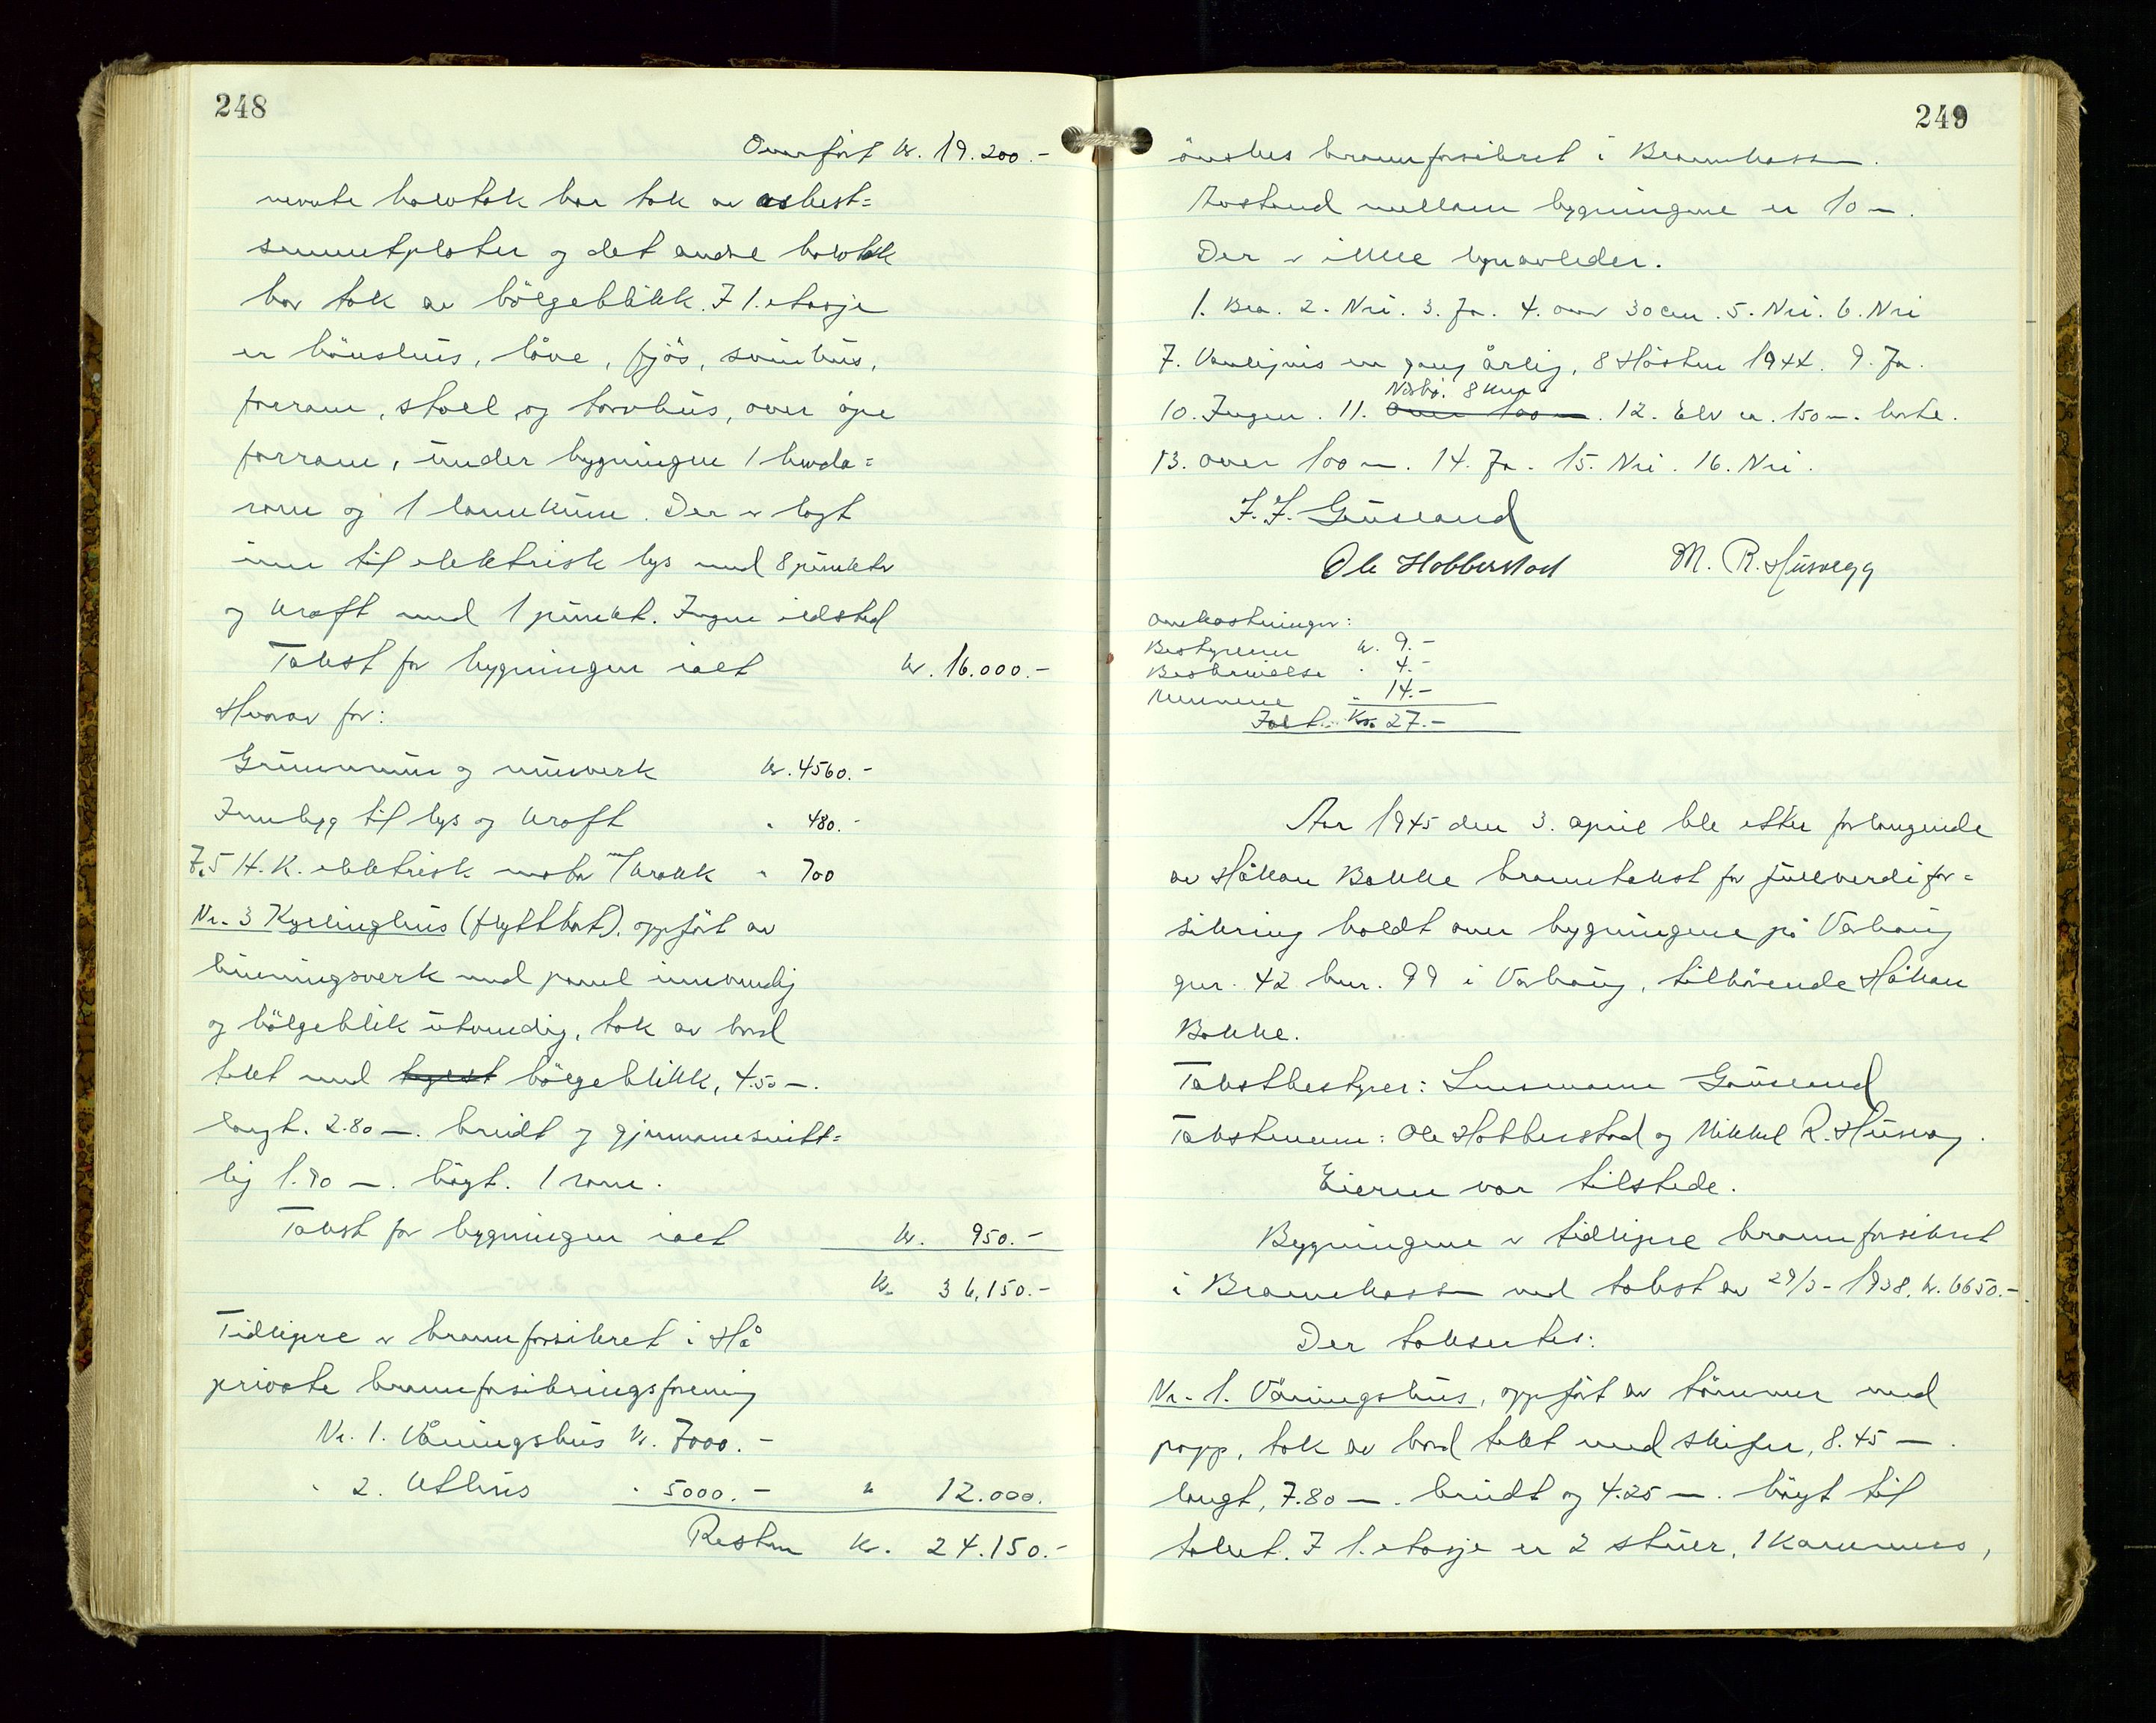 248
Overført kr. 19.200.-
nevnte halvtak har tak av asbest=
sementplater og det andre halvtak
har tak av bölgeblikk. I 1. etasje
er hönsehus, löve, fjös, svinehus,
forrom, stall og torvhus, over åpe
forrom, under bygningen 1
rom og 1 landkum. Der er lagt
inn til elektrisk lys med 8 punkter
og kraft med 1 punkt. Ingen ildsted
Takst for bygningen ialt kr. 16.000.-
Hvorav for:
Grunnmur og murverk kr. 4560.-
Innlegg til lys og kraft " 480.-
7,5 H.K. elektrisk motor m/krakk " 700
Nr. 3 Kyllinghus (flyttbart), oppfört av
bindingsverk med panel innvendig
og bölgeblik utvendig, tak av bord
tekt med tegest bölgeblikk, 4.50 m.
langt. 2.80 m. breidt og gjennemsnitt=
lig 1.90 m. högt. 1 rom.
Takst for bygningen ialt kr. 950.-
Kr. 36,150.-
Tidligere er brannforsikret i Hå
private brannforsikringsforening
Nr. 1. Våningshus kr. 7000.-
" 2. Uthus " 5000.- " 12.000.
Resten kr. 24.150.-
249
önskes brannforsikret i Brannkassen.
Avstand mellem bygningene er 10 m.
Der er ikke lynavleder.
1. Bra. 2. Nei. 3. Ja. 4. over 30 cm. 5. Nei. 6. Nei
7. Vanligvis en gang årlig, 8 Hösten 1944. 9. Ja.
Nærbö. 8 km.
10. Ingen. 11. Over 100 m. 12. Elv ca. 150 m. borte.
13. over 100 m. 14. Ja. 15. Nei. 16. Nei.
J. J. Grusland
Ole Hobberstad M. R. Husvegg
Omkostninger:
Bestyreren kr. 9.-
Beskrivelse " 4.-
Mennene " 14.-
Ialt. Kr. 27.-
Aar 1945 den 3. april ble etter forlangende
av Håkon Bakke branntakst for fullverdifor=
sikring holdt over bygningene på Varhaug
gnr. 42 bnr. 99 i Varhaug, tilhörende Håkon
Bakke.
Takstbestyrer: Lensmann Grusland
Takstmenn: Ole Hobberstad og Mikkel R. Husveg.
Eieren var tilstede.
Bygningene er tidligere brannforsikret
i Brannkassen ved takst av 29/3-1938, kr. 6650.-
Der taksertes:
Nr. 1. Våningshus, oppfört av tömmer med
papp, tak av bord tekt med skifer, 8.45 m.
langt, 7.80 m. breidt og 4.25 m. högt til
taket. I 1. etasje er 2 stuer, 1 kammers,